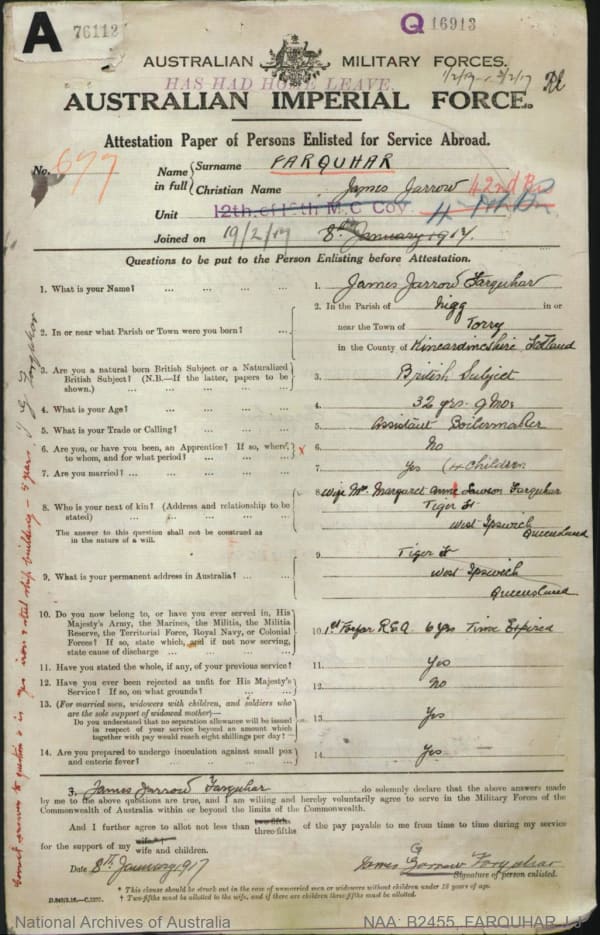 A 76112
Q 16913
AUSTRALIAN MILITARY FORCES.
HAS HAD HOME LEAVE.
AUSTRALIAN IMPERIAL FORCE.
Attestation Paper of Persons Enlisted for Service Abroad.
No. 677
Name in full { Surname FARQUHAR
Christian Name James Jarrow 42nd Bn
Unit 12th of 15th M.G. Coy
Joined on 19/2/17 8th January 1917.
Questions to be put to the Person Enlisting before Attestation.
1. What is your Name? ... ... ... ... 1. James Jarrow Farquhar
2. In or near what Parish or Town were you born? ... 2. In the Parish of Nigg in or
near the Town of Torry
in the County of Kincardineshire Scotland
3. Are you a natural born British Subject or a Naturalized
British Subject? (N.B.—If the latter, papers to be
shown.) ... ... ... 3. British Subject
4. What is your Age? ... ... ... ... 4. 32 yrs. 9 Mos
5. What is your Trade or Calling? ... ... ... 5. Assistant Boilermaker
6. Are you, or have you been, an Apprentice? If so, where,
to whom, and for what period? ... ... x 6. No
7. Are you married? ... ... ... ... 7. Yes (4 Children
8. Who is your next of kin? (Address and relationship to be
stated) ... ... ... 8. Wife Mrs. Margaret Anne Lawson Farquhar
Tiger St
West Ipswich
Queensland
The answer to this question shall not be construed as
in the nature of a will.
9. What is your permanent address in Australia? ... ... 9. Tiger St
West Ipswich
Queensland
10. Do you now belong to, or have you ever served in, His
Majesty's Army, the Marines, the Militia, the Militia
Reserve, the Territorial Force, Royal Navy, or Colonial
Forces? If so, state which, and if not now serving,
state cause of discharge ... ... ... 10. 1st Forfar R.G.A. 6 yrs Time Expired
11. Have you stated the whole, if any, of your previous service? 11. Yes
12. Have you ever been rejected as unfit for His Majesty's
Service? If so, on what grounds? ... ... 12. No
13. (For married men, widowers with children, and soldiers who
are the sole support of widowed mother)—
Do you understand that no separation allowance will be issued
in respect of your service beyond an amount which
together with pay would reach eight shillings per day? 13. Yes
14. Are you prepared to undergo inoculation against small pox
and enteric fever? ... ... ... 14. Yes
I, James Jarrow Farquhar do solemnly declare that the above answers made
by me to the above questions are true, and I am willing and hereby voluntarily agree to serve in the Military Forces of the
Commonwealth of Australia within or beyond the limits of the Commonwealth.
And I further agree to allot not less than two-fifths three-fifths of the pay payable to me from time to time during my service
for the support of my wife* wife and children.
Date 8th January 1917 James G Jarrow Farquhar
Signature of person enlisted.
* This clause should be struck out in the case of unmarried men or widowers without children under 18 years of age.
† Two-fifths must be allotted to the wife, and if there are children three-fifths must be allotted.
National Archives of Australia
NAA: B2455, FARQUHAR J J